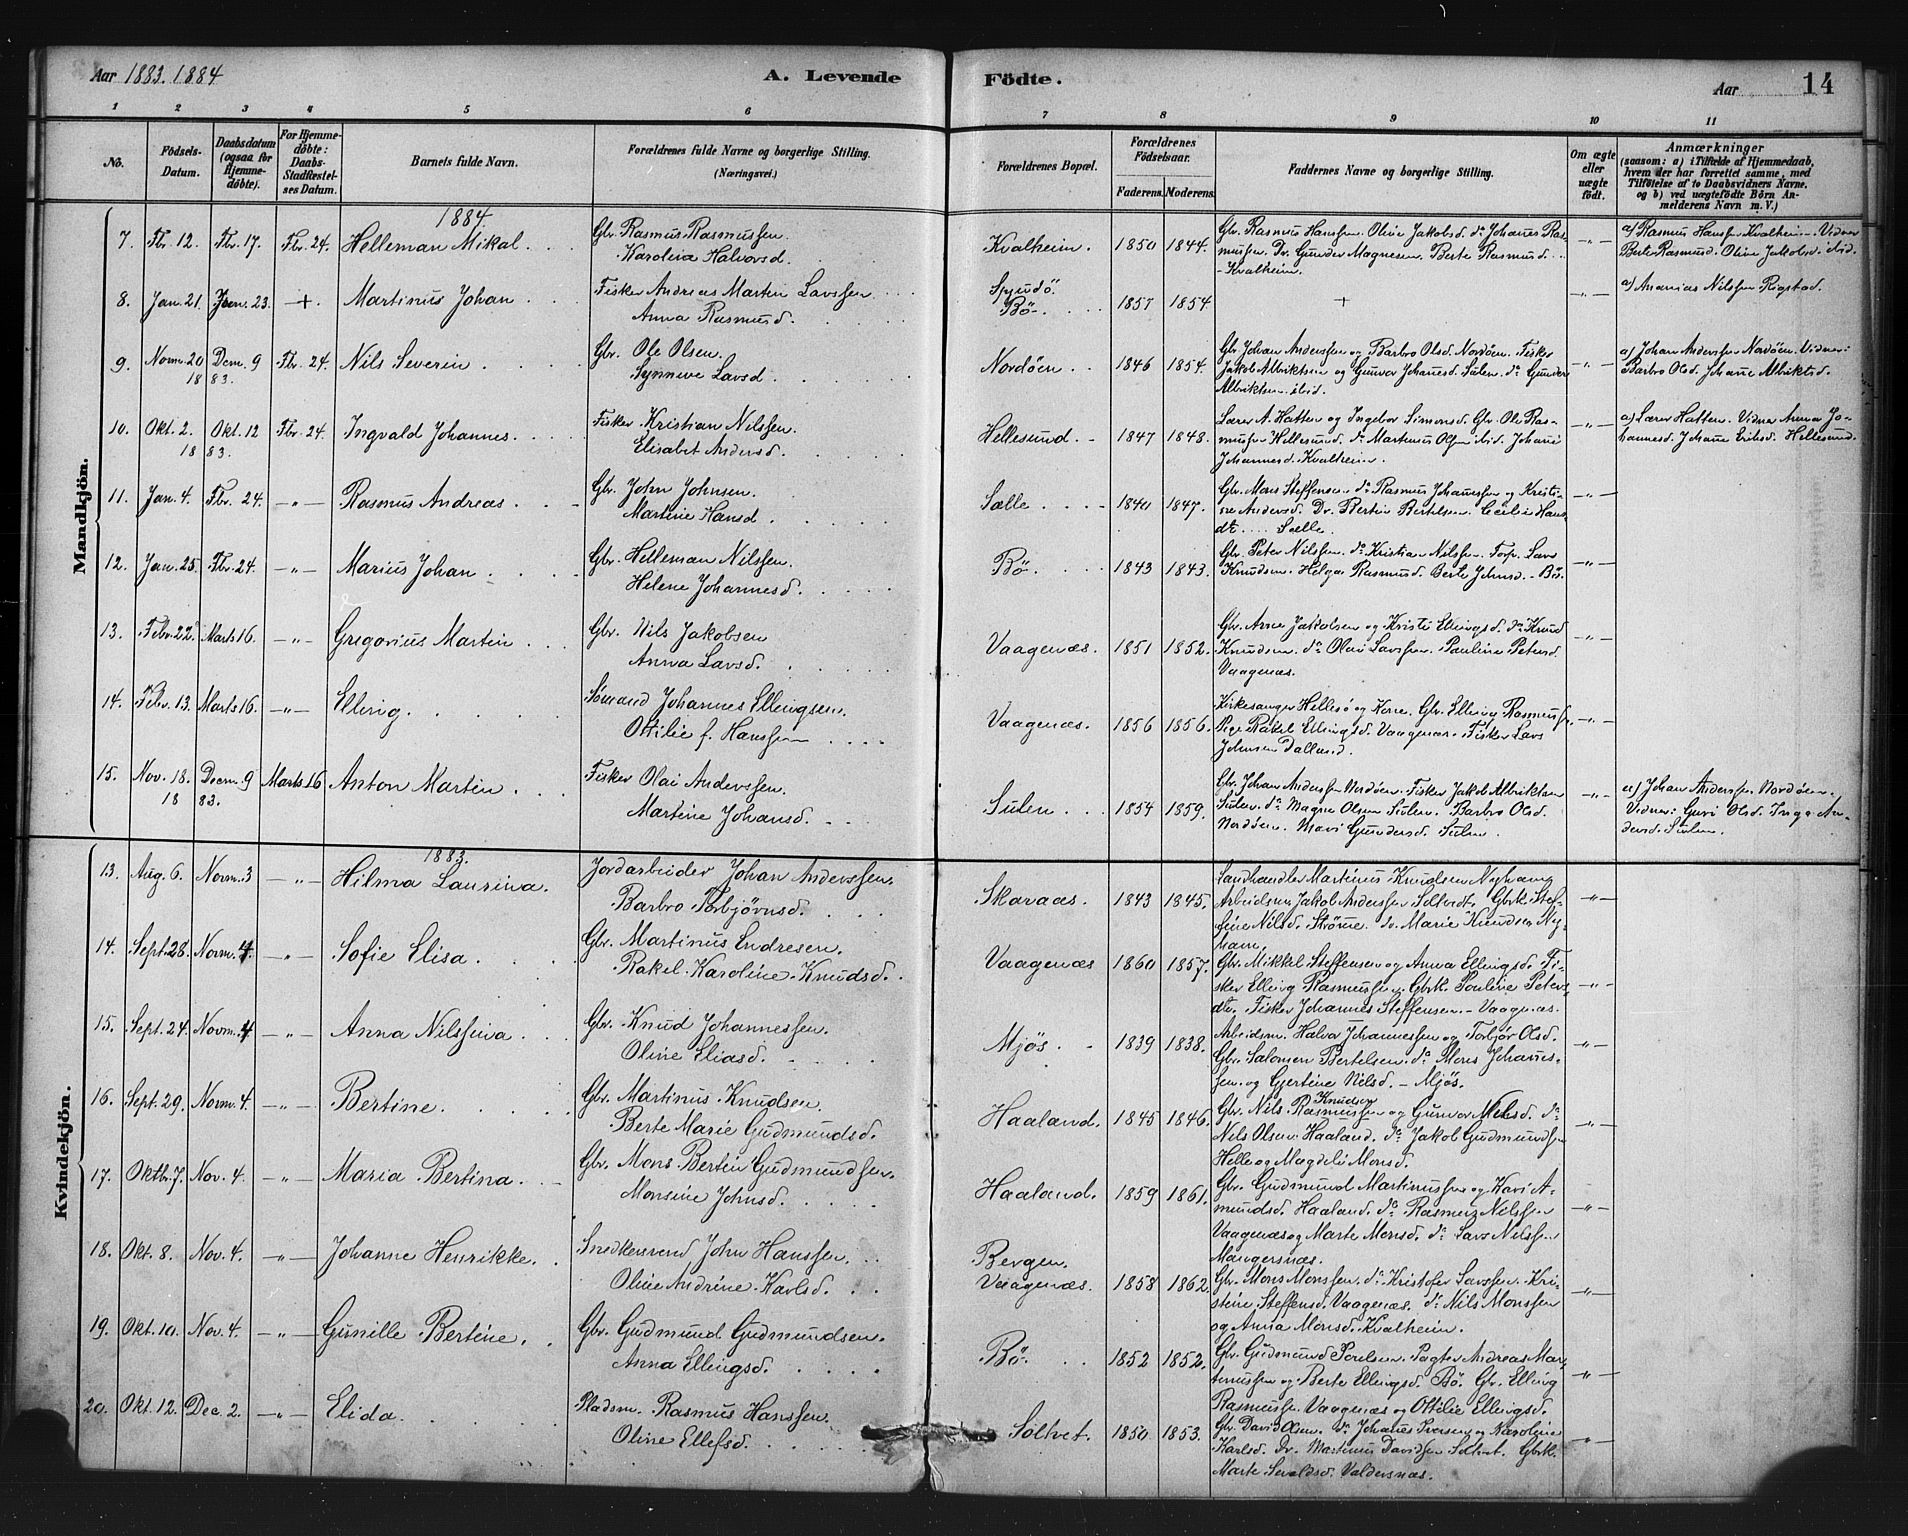 Aar 1883. 1884
A. Levende
Födte.
Aar
14
1 2 3 4 5 6 7 8 9 10 11
No.
Födsels-Datum.
Daabsdatum (ogsaa for Hjemme-döbte).
For Hjemme-döbte: Daabs-Stadfæstel-ses Datum.
Barnets fulde Navn.
Forældrenes fulde Navne og borgerlige Stilling. (Næringsvei.)
Forældrenes Bopæl.
Forældrenes Födselsaar.
Faderens. Moderens.
Faddernes Navne og borgerlige Stilling.
Om ægte eller uægte födt.
Anmærkninger
(saasom: a) i Tilfælde af Hjemmedaab,
hvem der har forrettet samme, med
Tilföielse af to Daabsvidners Navne.
og b) ved uægtefödte Börn An-
melderens Navn m. V.)
Mandkjön.
1884.
7. Fbr. 12. Fbr. 17. Fbr. 24. Helleman Mikal
Gbr. Rasmus Rasmussen.
Karolina Halvorsd.
Kvalheim. 1850 1844.
Gbr. Rasmus Hanssen. Olive Jakobsd. do Johanes Ras-
mussen. Dr. Gunder Magnesen. Berte Rasmusd.
- Kvalheim.
a) Rasmus Hanssen Kvalheim. Vidner
Berte Rasmusd. Olive Jakobsd. ibid.
8. Jan. 21. Jan. 23. + Martinus Johan
Fisker Andreas Martin Larssen
Anna Rasmusd.
Bö. 1857 1854.
+
a) Ananias Nilssen Rigstad.
9. Novm. 20 Decm. 9 Fbr. 24. Nils Severin
18 83.
Gbr. Ole Olsen.
Synneve Larsd.
Nordöen. 1846 1854.
Gbr. Johan Anderssen og Barbro Olsd. Nordöen. Fisker
Jakob Albriktsen og Gunvor Johanesd. Sulen. do Gunder
Albriktsen ibid.
a) Johan Anderssen Nordöen. Vidner:
Barbro Olsd. Johane Albriktsd.
10. Okt. 2. Okt. 12 Fbr. 24. Ingvald Johannes.
18 83.
Fisker Kristian Nilssen.
Elisabet Andersd.
Hellesund. 1847 1848.
Lærer A. Hatten og Ingebor Simonsd. Gbr. Ole Ras-
mussen Hellesund. do Martinus Olsen ibid. Johane
Johannesd. Kvalheim.
a) Lærer Hatten. Vidner Anna Jo-
hannesd. Johane Eriksd. Hellesund.
11. Jan. 4. Fbr. 24. Rasmus Andreas
Gbr. John Johnsen.
Martine Hansd.
Sælle. 1840 1847.
Gbr. Mons Steffensen. do Rasmus Johanessen og Kristi-
ne Andersd. Dr. Bertin Bertelsen. Cecilie Hans-
dt. Sælle.
12. Jan. 25. Fbr. 24. Marius Johan
Gbr. Helleman Nilssen.
Helene Johannesd.
Bö. 1843 1843.
Gbr. Peter Nilssen. do Kristian Nilssen. Torp. Lars
Knudsen. Helga Rasmusd. Berte Johnsd. - Bö.
13. Febr. 22. Marts 16. Gregorius Martin
Gbr. Nils Jakobsen
Anna Larsd.
Vaagenæs. 1851 1852.
Gbr. Arne Jakobsen og Kristi Ellingsd. do Knud
Knudsen. do Olai Larssen. Pauline Petersd.
Vaagenæs.
14. Febr. 13. Marts 16. Elling.
Sömand Johannes Ellingsen.
Ottilie f. Hanssen
Vaagenæs. 1856 1856.
Kirkesanger Hellesö og Kone. Gbr. Elling Rasmussen.
Pige Rakel Ellingsd. Vaagenæs. Fisker Lars
Johnsen Dalland.
15. Nov. 18. Decm. 9 Marts 16 Anton Martin
18 83.
Fisker Olai Anderssen.
Martine Johansd.
Sulen. 1854 1859.
Gbr. Johan Anderssen Nordöen. Fisker Jakob Albriktsen
Sulen. do Magne Olsen Sulen. Barbro Olsd.
Nordöen. Mari Gundersd. Sulen.
a) Johan Anderssen Nordöen.
Vidner: Guri Olsd. Inga An-
dersd. Sulen.
Kvindekjön.
1883.
13. Aug. 6. Novm. 3 Hilma Laurina.
Jordarbeider Johan Anderssen.
Barbro Torbjørnsd.
Skaraas. 1843 1845.
Landhandler Martinus Knudsen Nyhavn
Arbeidsm. Jakob Anderssen Soltvedt. Gbrk. Stef-
fine Nilsd. Strøme. do. Marie Knudsen Ny-
havn.
14. Sept. 28. Novm. 4. Sofie Elisa.
Gbr. Martinus Endresen.
Rakel Karoline Knudsd.
Vaagenæs 1860 1857.
Gbr. Mikkel Steffensen og Anna Ellingsd. Fi-
sker Elling Rasmussen. Gbrk. Pauline Peters-
dtr. Fisker Johannes Steffensen. - Vaagenæs.
15. Sept. 24. Novm. 4 Anna Nilssina
Gbr. Knud Johannessen.
Oline Eliasd.
Mjös. 1839 1838.
Arbeidsm. Halvor Johannessen og Torbjør Olsd.
Gbr. Salomon Bertelsen. do Mons Johanes-
sen. og Gjertine Nilsd. - Mjös.
16. Sept. 29. Novm. 4. Bertine.
Gbr. Martinus Knudsen.
Berte Marie Gudmundsd.
Haaland. 1845 1846.
Knudsen
Gbr. Nils Rasmussen og Gunvor Nilsd. do
Nils Olsen Haaland. do Jakob Gudmundsen
Helle og Magdeli Monsd.
17. Oktbr. 7. Nov. 4. Maria Bertina.
Gbr. Mons Bertin Gudmundsen.
Monsine Johnsd.
Haaland. 1859 1861.
Gbr. Gudmund Martinussen og Kari A-
mundsd. Haaland. do Rasmus Nilssen
Vaagenæs og Marte Monsd. do Lars Nilssen
Mangersnæs.
18. Okt. 8. Nov. 4. Johanne Henrikke.
Snedkersvend John Hanssen.
Oline Andrine Karlsd.
Bergen.
Vaagenæs. 1858 1862.
Gbr. Mons Monssen. do Kristofer Larssen. Kri-
stine Steffensd. Vaagenæs. do Nils Monssen
og Anna Monsd. Kvalheim.
19. Okt. 10. Nov. 4. Gunille Bertine.
Gbr. Gudmund Gudmundsen.
Anna Ellingsd.
Bö. 1852 1852.
Gbr. Gudmund Poulsen. Pagter Andreas Mar-
tinussen og Berte Ellingsd. Bö. Gbr. Elling
Rasmussen Vaagenæs og Ottilie Ellingsd.
20. Okt. 12. Dec. 2. Elida.
Pladsm. Rasmus Hanssen.
Oline Ellefsd.
Soltvet. 1850 1853.
Gbr. David Olsen. do Johanes Iversen og Karoline
Karlsd. Dr. Martinus Davidsen Soltvet. Gbrk.
Marte Sevaldsd. Valdersnæs.